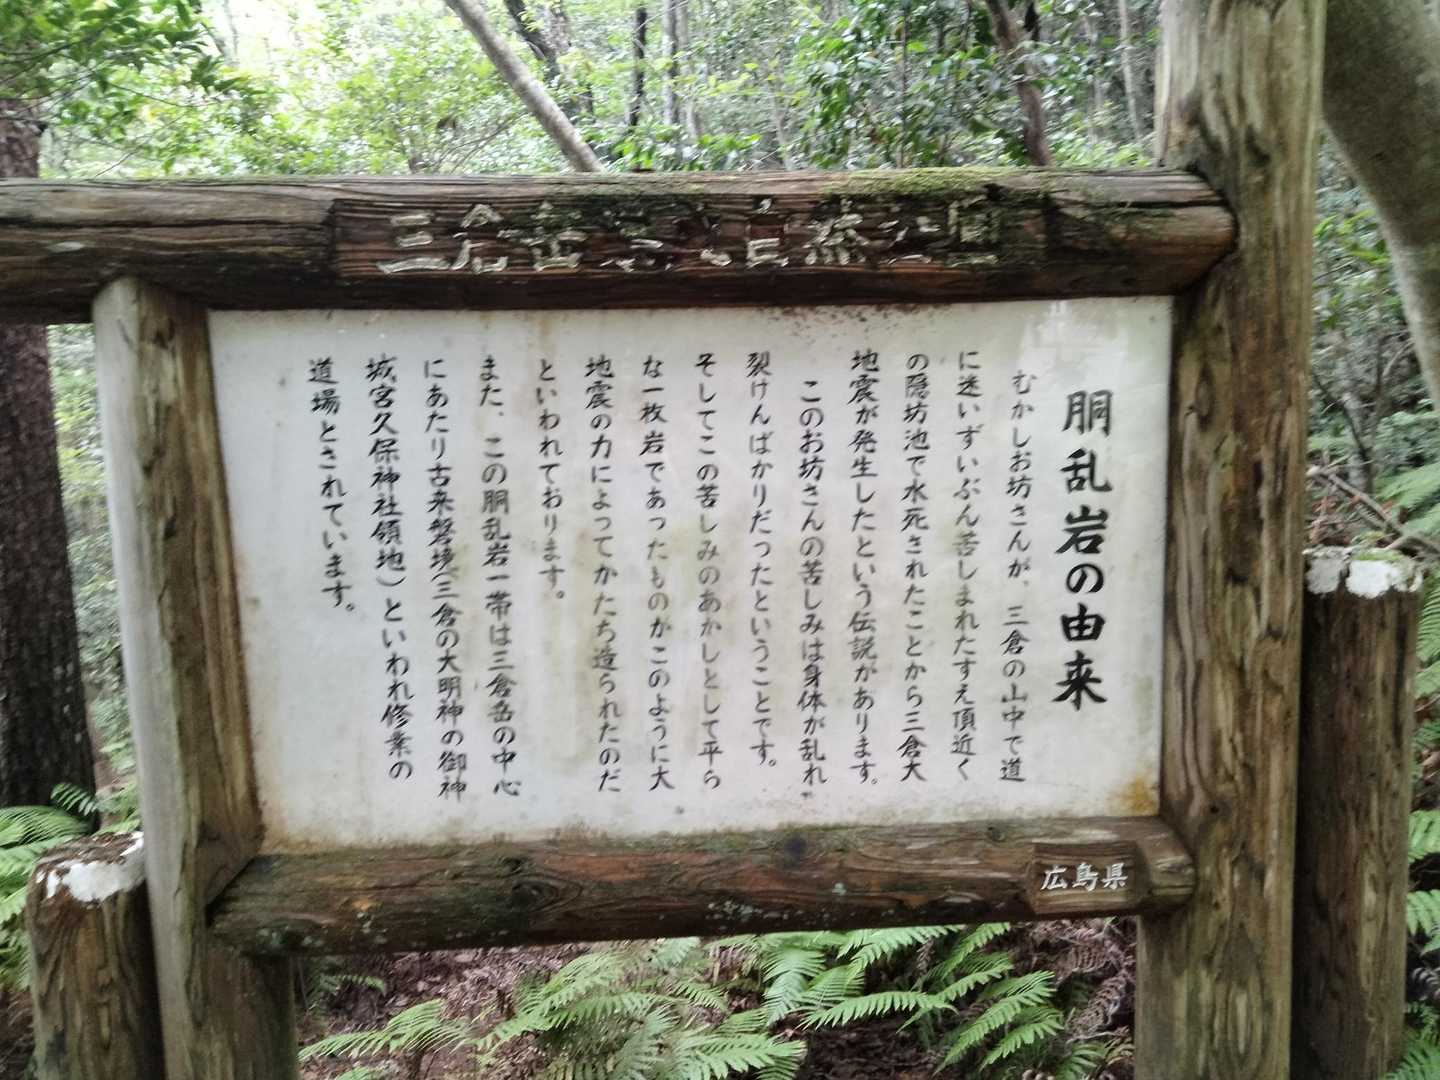 三倉岳県立自然公園
胴乱岩の由来
むかしお坊さんが、三倉の山中で道
に迷いずいぶん苦しまれたすえ頂近く
の隠坊池で水死されたことから三倉大
地震が発生したという伝説があります。
このお坊さんの苦しみは身体が乱れ
裂けんばかりだったということです。
そしてこの苦しみのあかしとして平ら
な一枚岩であったものがこのように大
地震の力によってかたち造られたのだ
といわれております。
また、この胴乱岩一帯は三倉岳の中心
にあたり古来磐境(三倉の大明神の御神
域宮久保神社領地)といわれ修業の
道場とされています。
広島県